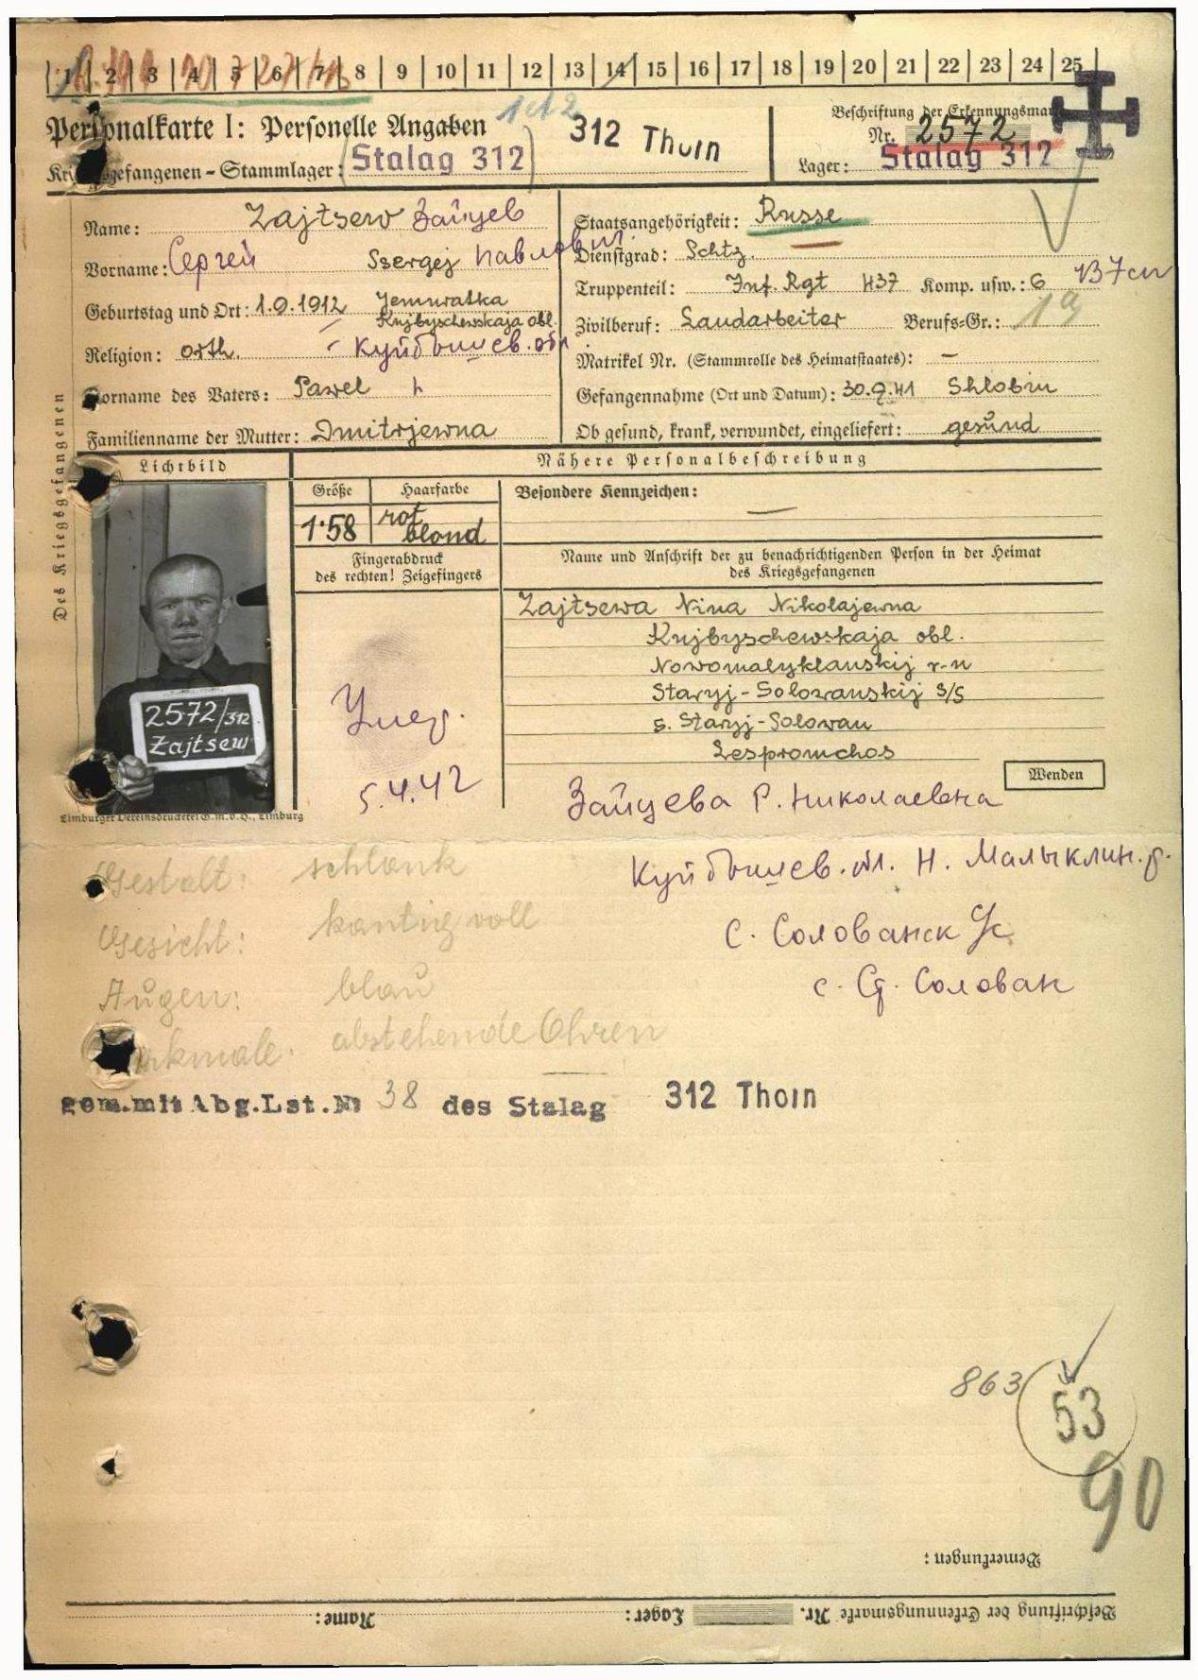 1 2 3 4 5 6 7 8 9 10 11 12 13 14 15 16 17 18 19 20 21 22 23 24 25
Personalkarte I: Personelle Angaben
312 Thorn
Beschriftung der Erkennungsmarke
Nr. 2572
Kriegsgefangenen-Stammlager: Stalag 312
Lager: Stalag 312
Des Kriegsgefangenen
Name: Zajtsew Зайцев
Vorname: Сергей Ssergej Павлович
Geburtstag und Ort: 1.9.1912 Jemuratka
Kujbyschewskaja obl.
Religion: orth. Куйбышев. обл.
Vorname des Vaters: Pawel
Familienname der Mutter: Dmitrjewna
Staatsangehörigkeit: Russe
Dienstgrad: Schtz.
Truppenteil: Inf. Rgt 437 Komp. usw.: 6
Zivilberuf: Landarbeiter Berufs-Gr.: 19
Matrikel Nr. (Stammrolle des Heimatstaates): –
Gefangennahme (Ort und Datum): 30.9.41 Shlobin
Ob gesund, krank, verwundet, eingeliefert: gesund
Lichtbild
Nähere Personalbeschreibung
Größe
Haarfarbe
Besondere Kennzeichen:
1.58
rot
blond
—
Fingerabdruck
des rechten! Zeigefingers
Name und Anschrift der zu benachrichtigenden Person in der Heimat
des Kriegsgefangenen
2572/312
Zajtsew
Умер.
5.4.42
Zajtsewa Nina Nikolajewna
Kujbyschewskaja obl.
Nowomalyklanskij r-n
Staryj-Solowanskij S/S
s. Staryj-Solowan
Lespromchos
Wenden
Limburger Vereinsdruckerei G.m.b.H., Limburg
Зайцева Р. Николаевна
Куйбышев. обл. Н. Малыклин. р.
с. Солованск
с. Ст. Солован
Gestalt: schlank
Gesicht: kantig voll
Augen: blau
Merkmale: abstehende Ohren
gem. mit Abg. Lst. Nr 38 des Stalag 312 Thorn
863
53
90
Bemerkungen:
Beschriftung der Erkennungsmarke Nr. Lager: Name: